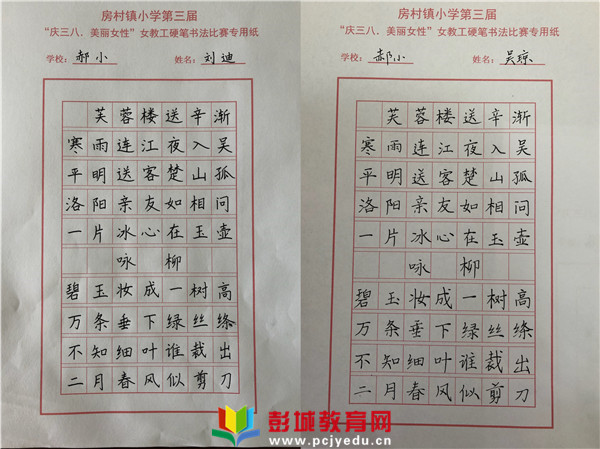 房村镇小学第三届
“庆三八．美丽女性”女教工硬笔书法比赛专用纸
学校：郝小 姓名：刘迪
芙蓉楼送辛渐
寒雨连江夜入吴
平明送客楚山孤
洛阳亲友如相问
一片冰心在玉壶
咏柳
碧玉妆成一树高
万条垂下绿丝绦
不知细叶谁裁出
二月春风似剪刀
房村镇小学第三届
“庆三八．美丽女性”女教工硬笔书法比赛专用纸
学校：郝小 姓名：吴琼
芙蓉楼送辛渐
寒雨连江夜入吴
平明送客楚山孤
洛阳亲友如相问
一片冰心在玉壶
咏柳
碧玉妆成一树高
万条垂下绿丝绦
不知细叶谁裁出
二月春风似剪刀
彭城教育网
www.pcjyedu.cn